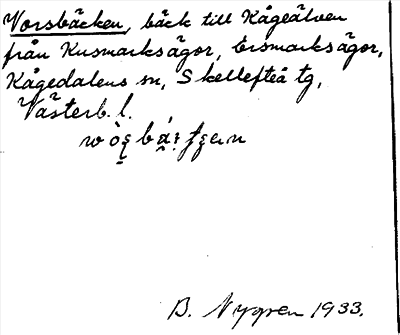 Vorsbäcken, bäck till Kågeälven
från Kusmarksägor, Ersmarksägor,
Kågedalens sn, Skellefteå tg,
Västerb. l.
B. Nygren 1933.